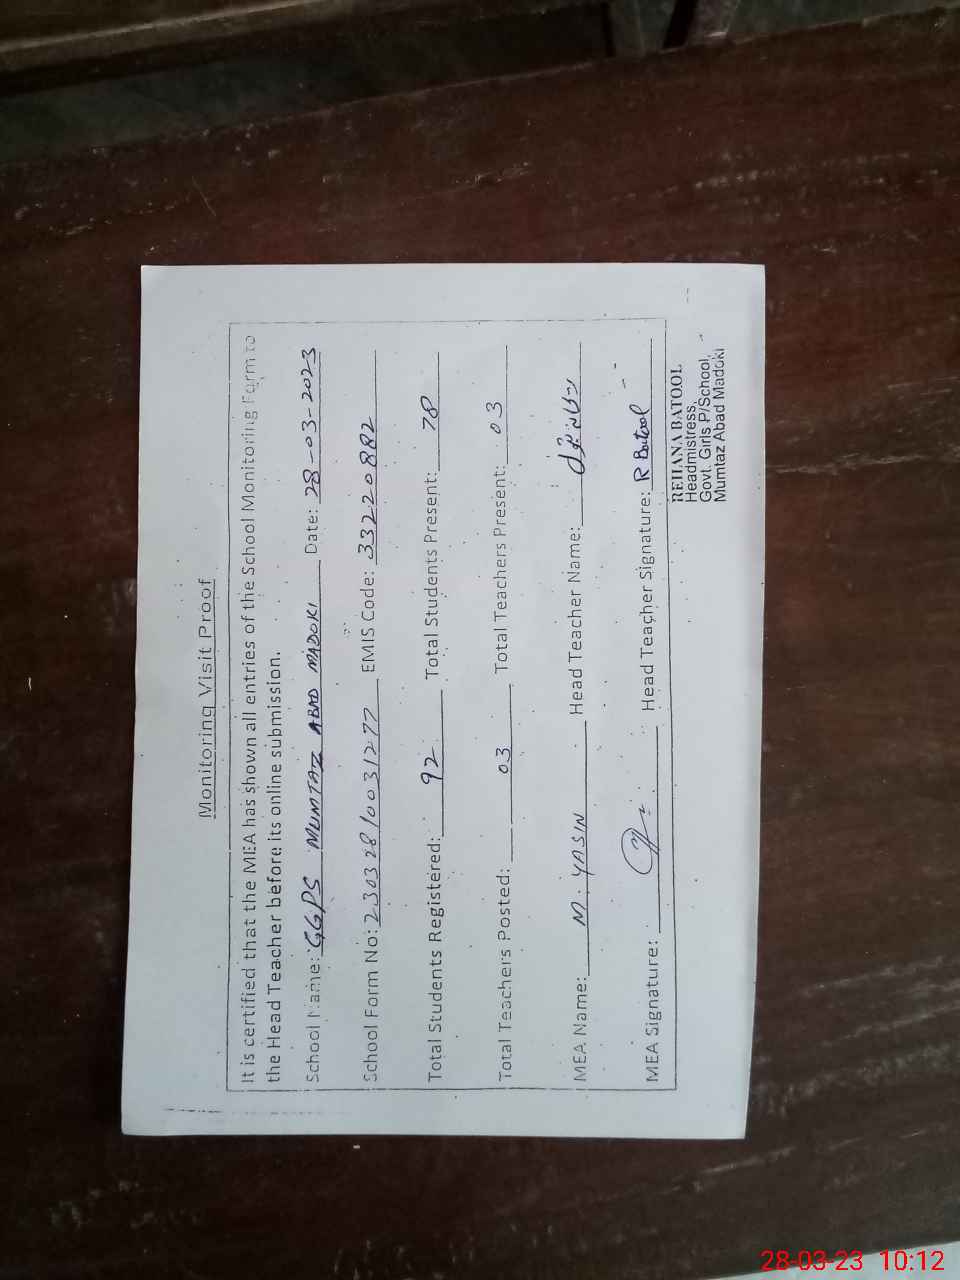 Monitoring Visit Proof
It is certified that the MEA has shown all entries of the School Monitoring Form to
the Head Teacher before its online submission.
School Name: GGPS MUMTAZ ABAD MADOKI Date: 28-03-2023
School Form No: 23032810031277 EMIS Code: 33220882
Total Students Registered: 92 Total Students Present: 78
Total Teachers Posted: 03 Total Teachers Present: 03
MEA Name: M. YASIN Head Teacher Name:
MEA Signature: Head Teacher Signature: R Batool
REHANA BATOOL
Headmistress,
Govt. Girls P/School,
Mumtaz Abad Madoki
28-03-23 10:12